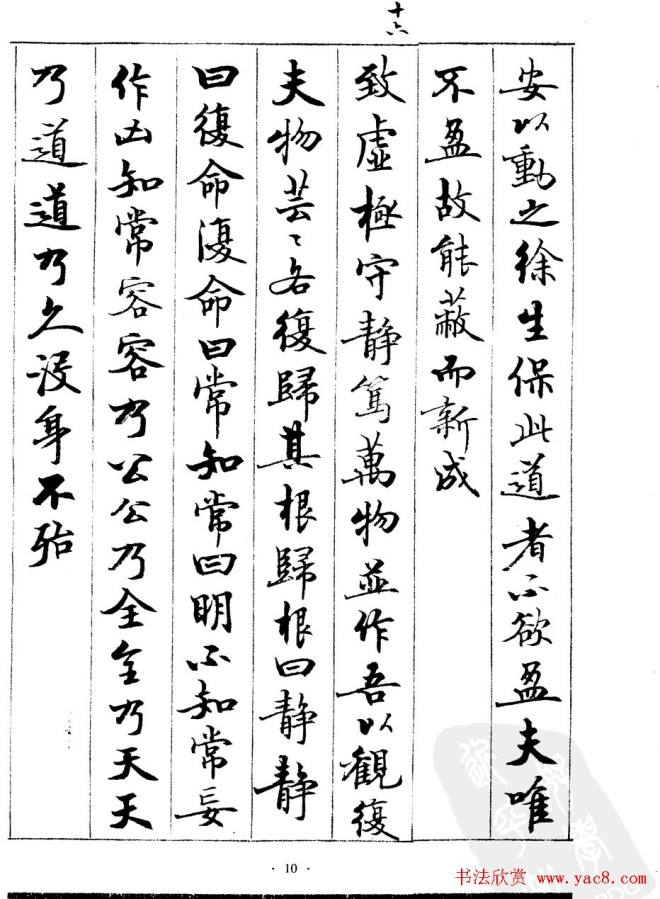 十六
安以動之徐生保此道者不欲盈夫唯
不盈故能蔽而新成
致虛極守靜篤萬物並作吾以觀復
夫物芸〻各復歸其根歸根曰靜靜
曰復命復命曰常知常曰明不知常妄
作凶知常容容乃公公乃全全乃天天
乃道道乃久沒身不殆
· 10 ·
书法欣赏 www.yac8.com